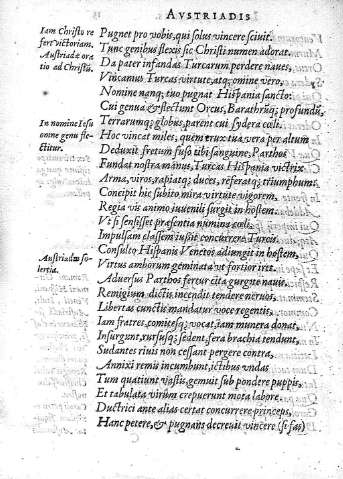 AVSTRIADIS
Iam Christo re
fort victoriam.
Austriadæ ora
tio ad Christū.
Pugnet pro vobis, qui solus vincere sciuit.
Tunc genibus flexis sic Christi numen adorat.
Da pater infandas Turcarum perdere naues,
Vincamus Turcas virtute, atq; omine vero,
Nomine nanq; tuo pugnat Hispania sancto:
Cui genua & flectunt Orcus, Barathrūq; profundū,
In nomine Iesu
omne genu fle-
ctitur.
Terrarumq; globus, parent cui sydera cœli.
Hoc vincat miles, quem crux tua vera per altum
Deduxit fretum fuso tibi sanguine, Parthos
Fundat nostra manus, Turcas Hispania victrix
Arma, viros, rapiatq; duces, referatq; triumphum.
Concipit hic subito mira virtute vigorem,
Regia vis animo iuuenili surgit in hostem.
Vt si sensisset præsentia numina cœli.
Impulsam classem iussit concurrere Turcis.
Consulto Hispanis Venetos adiungit in hostem,
Austriadæ so-
lertia.
Virtus amborum geminata vt fortior iret.
Aduersus Parthos fertur cita gurgite nauis.
Remigium dictis incendit tendere neruos,
Libertas cunctis mandatur voce regentis,
Iam fratres, comitesq; vocat, iam munera donat,
Insurgunt, rursusq; sedent, fera brachia tendunt,
Sudantes riuis non cessant pergere contra,
Annixi remis incumbunt, ictibus vndas
Tum quatiunt vastis, gemuit sub pondere puppis,
Et tabulata virûm crepuerunt mota labore.
Ductrici ante alias certat concurrere princeps,
Hanc petere, & pugnans decreuit vincere (si fas)